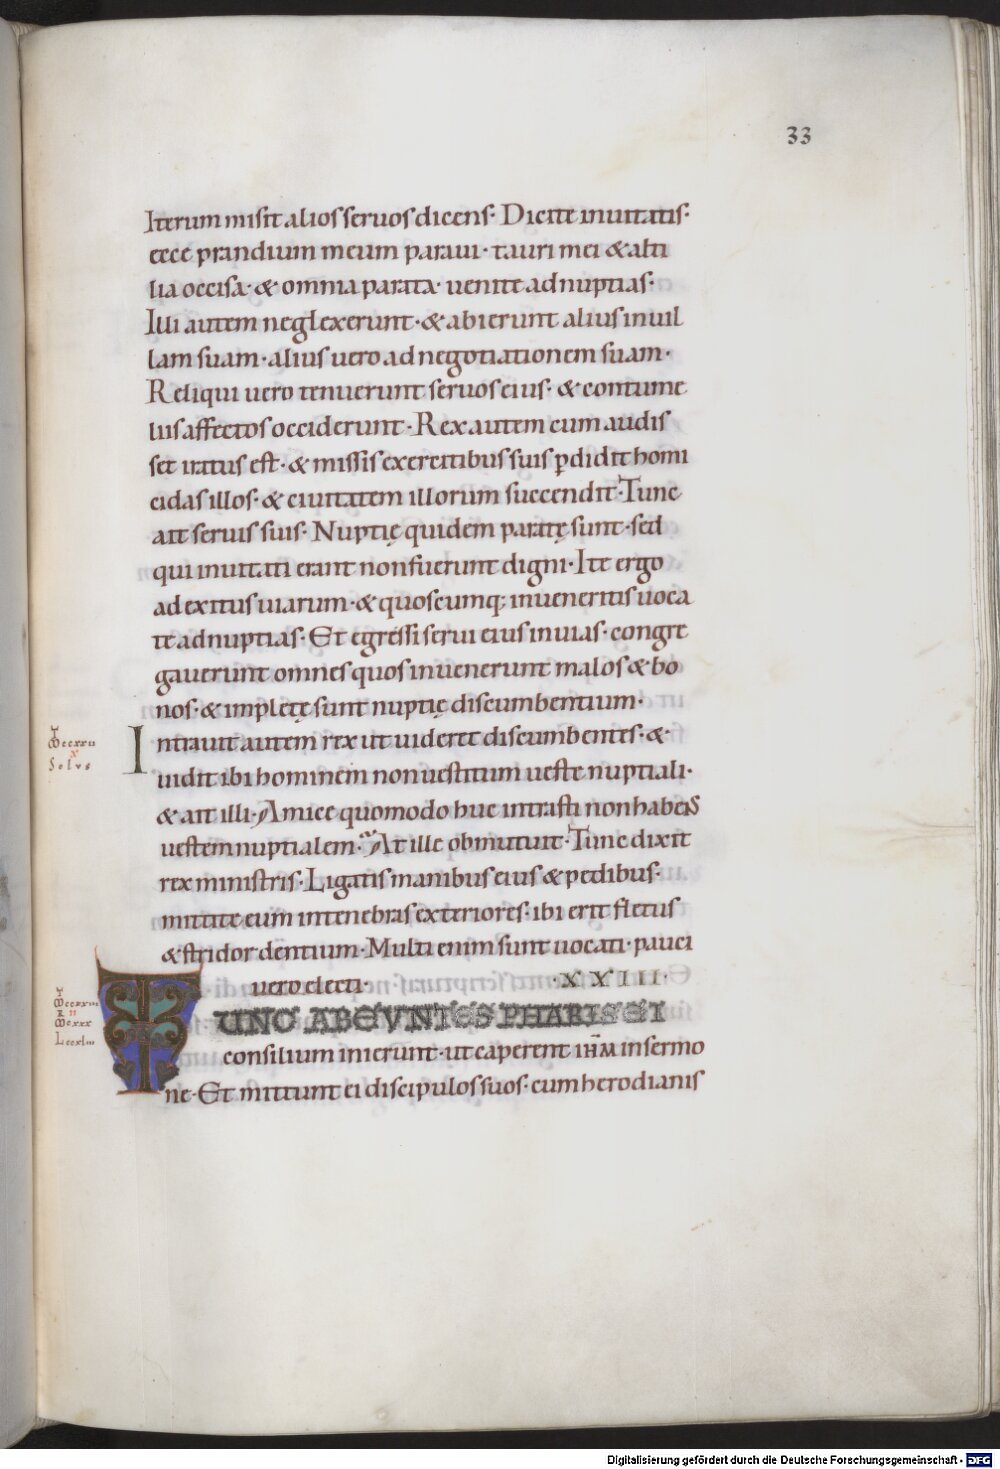 33
Iterum misit alios seruos dicens· Dicite inuitatis·
ecce prandium meum paraui· tauri mei & alti
lia occisa· & omnia parata· uenite ad nuptias·
Illi autem neglexerunt· & abierunt alius in uil
lam suam· alius uero ad negotiationem suam·
Reliqui uero tenuerunt seruos eius· & contume
liis affectos occiderunt· Rex autem cum audis
set iratus est· & missis exercitibus suis ꝑdidit homi
cidas illos· & ciuitatem illorum succendit· Tunc
ait seruis suis· Nuptię quidem paratę sunt· sed
qui inuitati erant non fuerunt digni· Ite ergo
ad exitus uiarum· & quoscumq; inueneritis uoca
te ad nuptias· Et egressi serui eius in uias· congre
gauerunt omnes quos inuenerunt malos & bo
nos· & implete sunt nuptię discumbentium·
Intrauit autem rex ut uideret discumbentes· &
uidit ibi hominem non uestitum ueste nuptiali·
& ait illi· Amice quomodo huc intrasti non habens
uestem nuptialem· At ille obmutuit· Tunc dixit
rex ministris· Ligatis manibus eius & pedibus·
mittite eum in tenebras exteriores· ibi erit fletus
& stridor dentium· Multi enim sunt uocati· pauci
uero electi· ·XXIII·
TUNC ABEUNTES PHARISEI
consilium inierunt· ut caperent ihm̄ in sermo
ne· Et mittunt ei discipulos suos· cum herodianis
Digitalisierung gefördert durch die Deutsche Forschungsgemeinschaft - DFG